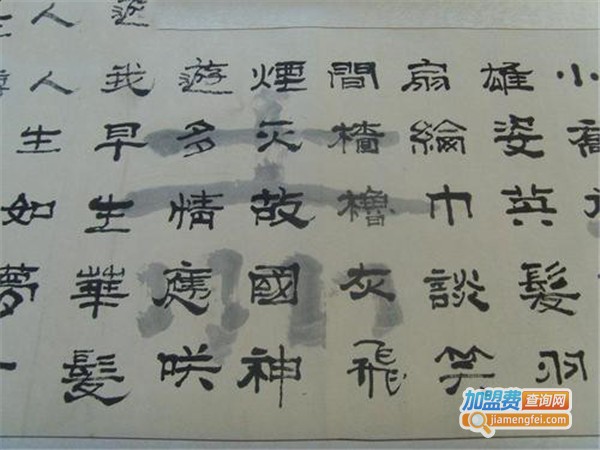 小喬
雄姿英髮羽
扇綸巾談笑
間檣櫓灰飛
煙灭故國神
遊多情應咲
我早生華髮
人生如夢一
加盟费查询网
jiamengfei.com